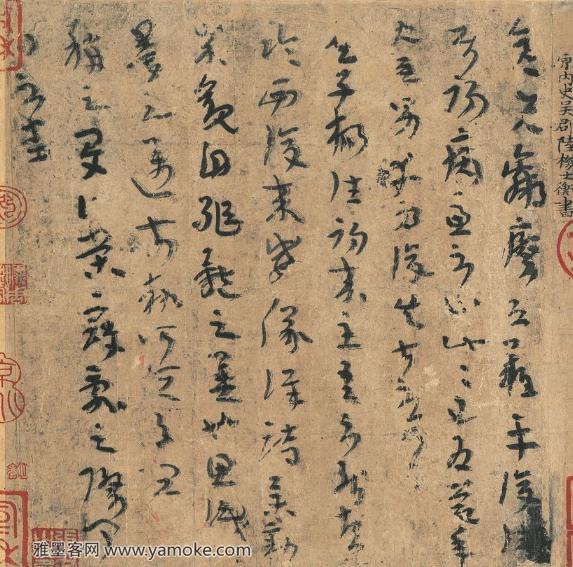 原內史吳郡陸機士衡書
彥先羸瘵恐難平復往屬
初病慮不止此此已為慶承
使唯男幸為復失前憂耳
吳子楊往初來主吾不能盡
臨西復來威儀詳跱舉動
成觀自軀體之美也思識
量之邁前執所恒有宜
稱之夏伯榮寇亂之際聞
問不悉
雅墨客网 www.yamoke.com